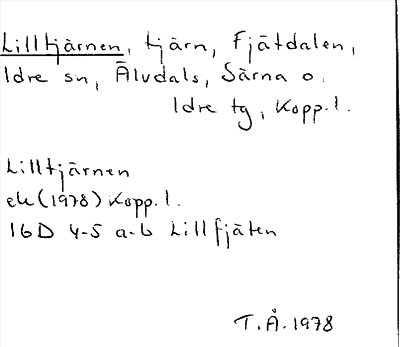 Lilltjärnen, tjärn, Fjätdalen,
Idre sn, Älvdals, Särna o.
Idre tg, Kopp. l.
Lilltjärnen
ek (1978) Kopp. l.
16D 4-5 a-b Lillfjäten
T.Å. 1978